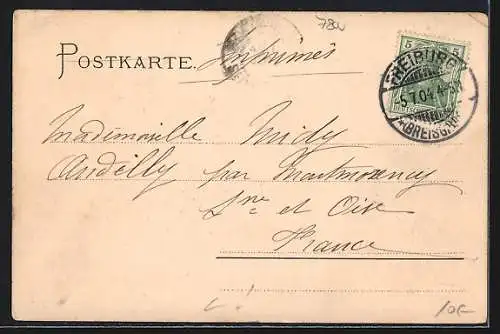 780
POSTKARTE. Imprimés
5 5
FREIBURG
5.7.04.4-5N
(BREISGAU)
Mademoiselle Midy
Andilly par Montmorency
Sne et Oise
France
10.-